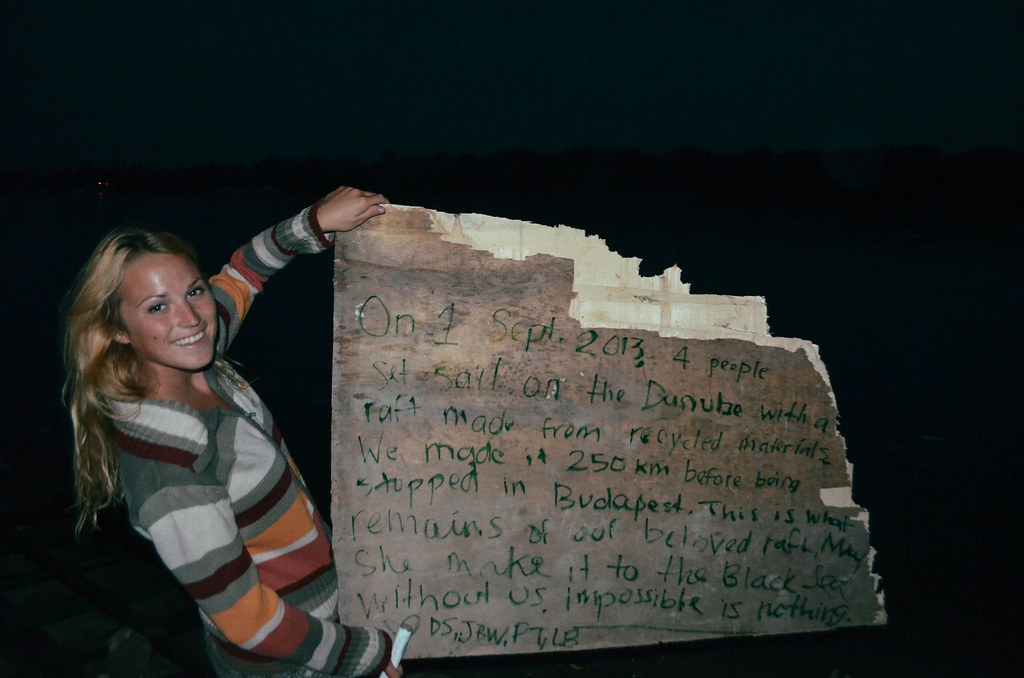 On 1 Sept. 2013, 4 people
set sail on the Danube with a
raft made from recycled materials.
We made it 250 km before being
stopped in Budapest. This is what
remains of our beloved raft. May
she make it to the Black Sea
without us. Impossible is nothing.
DS, JBW, PT, LB